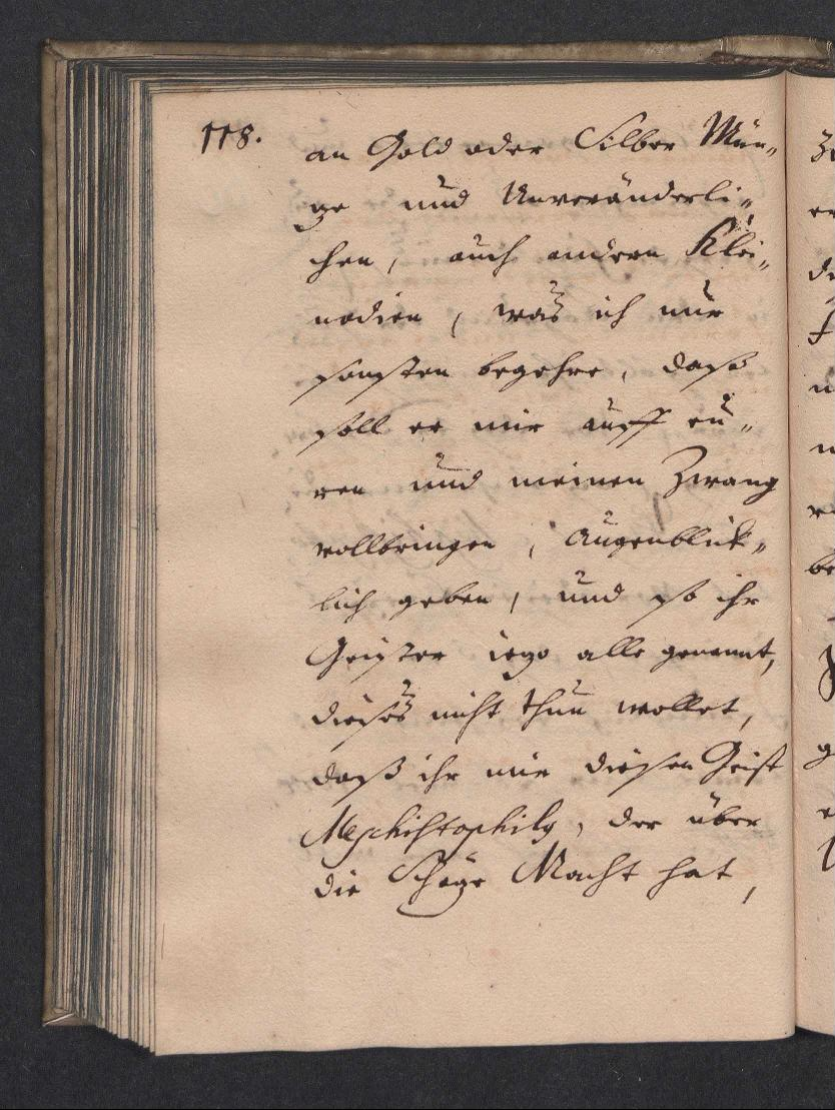 118.
an Gold oder Silber Mün„
ze und Unveränderli„
chen, auch andern Klei„
nodien, was ich nur
sonsten begehre, daß
soll er mir auff eu„
ren und meinen Zwang
vollbringen, augenblick„
lich geben, und so ihr
Geister iezo alle genannt,
dieses nicht thun wollet,
daß ihr mir diesen Geist
Mephistophily, der über
die Schäze Macht hat,